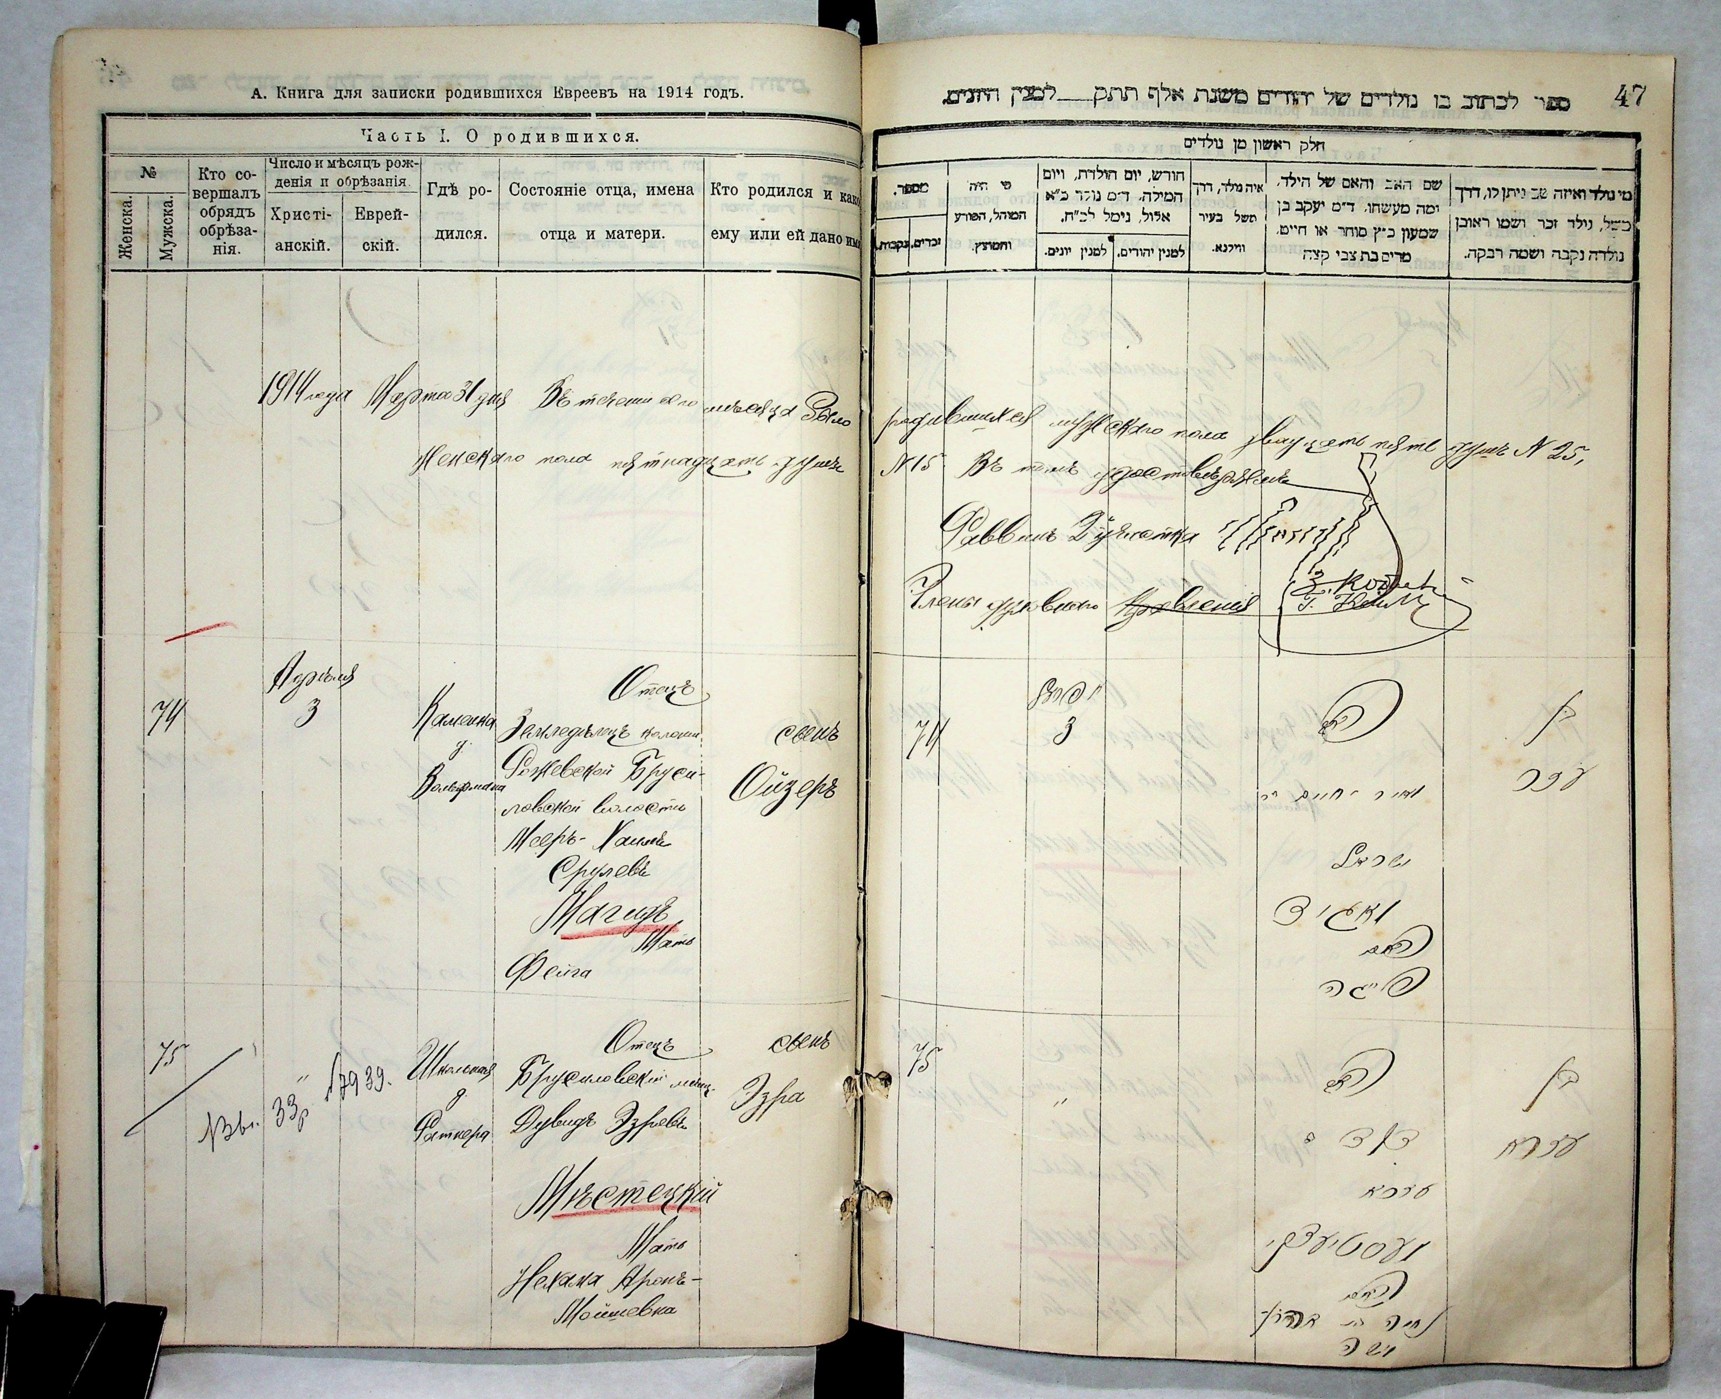 А. Книга для записки родившихся Евреевъ на 1914 годъ.
Часть I. О родившихся.
№
Женска.
Мужска.
Кто со-
вершалъ
обрядъ
обрѣза-
нія.
Число и мѣсяцъ рож-
денія и обрѣзанія
Христі-
анскій.
Еврей-
скій.
Гдѣ ро-
дился.
Состояніе отца, имена
отца и матери.
Кто родился и како
ему или ей дано им
1914 года Марта 31 дня Въ течении сего мѣсяца было
Женскаго пола пятнадцать душъ
74
Апрѣля
3
Каменка
д
Вольфмана
Отецъ
Земледѣлецъ колоніи
Рожевской Бруси-
ловской волости
Меръ-Хаимъ
Срулевъ
Магидъ
Мать
Фейга
сынъ
Ойзеръ
75
Вы. 33 р №7939.
Школьная
д
Ратнера
Отецъ
Брусиловскій мѣщ.
Дувидъ Эзревъ
Мѣстецкій
Мать
Нехама Аронъ-
Мошевна
сынъ
Эзра
47
ספר לכתוב בו נולדים של יהודים משנת אלף תתק למנין היונים.
חלק ראשון מן נולדים
מספר.
זכרים.
נקבות.
מי היה
המוהל, הפורע
והמוצץ.
חודש, יום הולדת, ויום
המילה. ד״מ נולד כ״א
אלול, נימל לכ״ח.
למנין יונים.
למנין יהודים.
איה נולד, דרך
משל בעיר
ווילנא.
שם האב והאם של הילד,
ומה מעשהו. ד״מ יעקב בן
שמעון כ״ץ סוחר או חייט,
מרים בת צבי קצה
מי נולד ואיזה שם ניתן לו, דרך
משל, נולד זכר ושמו ראובן
נולדה נקבה ושמה רבקה.
родившихся мужскаго пола двадцать пять душъ N 25,
N 15 Въ томъ удостовѣряемъ
Раввинъ
Члены духовнаго правленія
74
3
האב
מאיר חיים ב״ר
ישראל
מאגיד
האם
פייגה
בן
עזר
75
״
האב
דוד ב
עזרא
מעסטיעצקי
האם
נחמה בת אהרון
משה
בן
עזרא